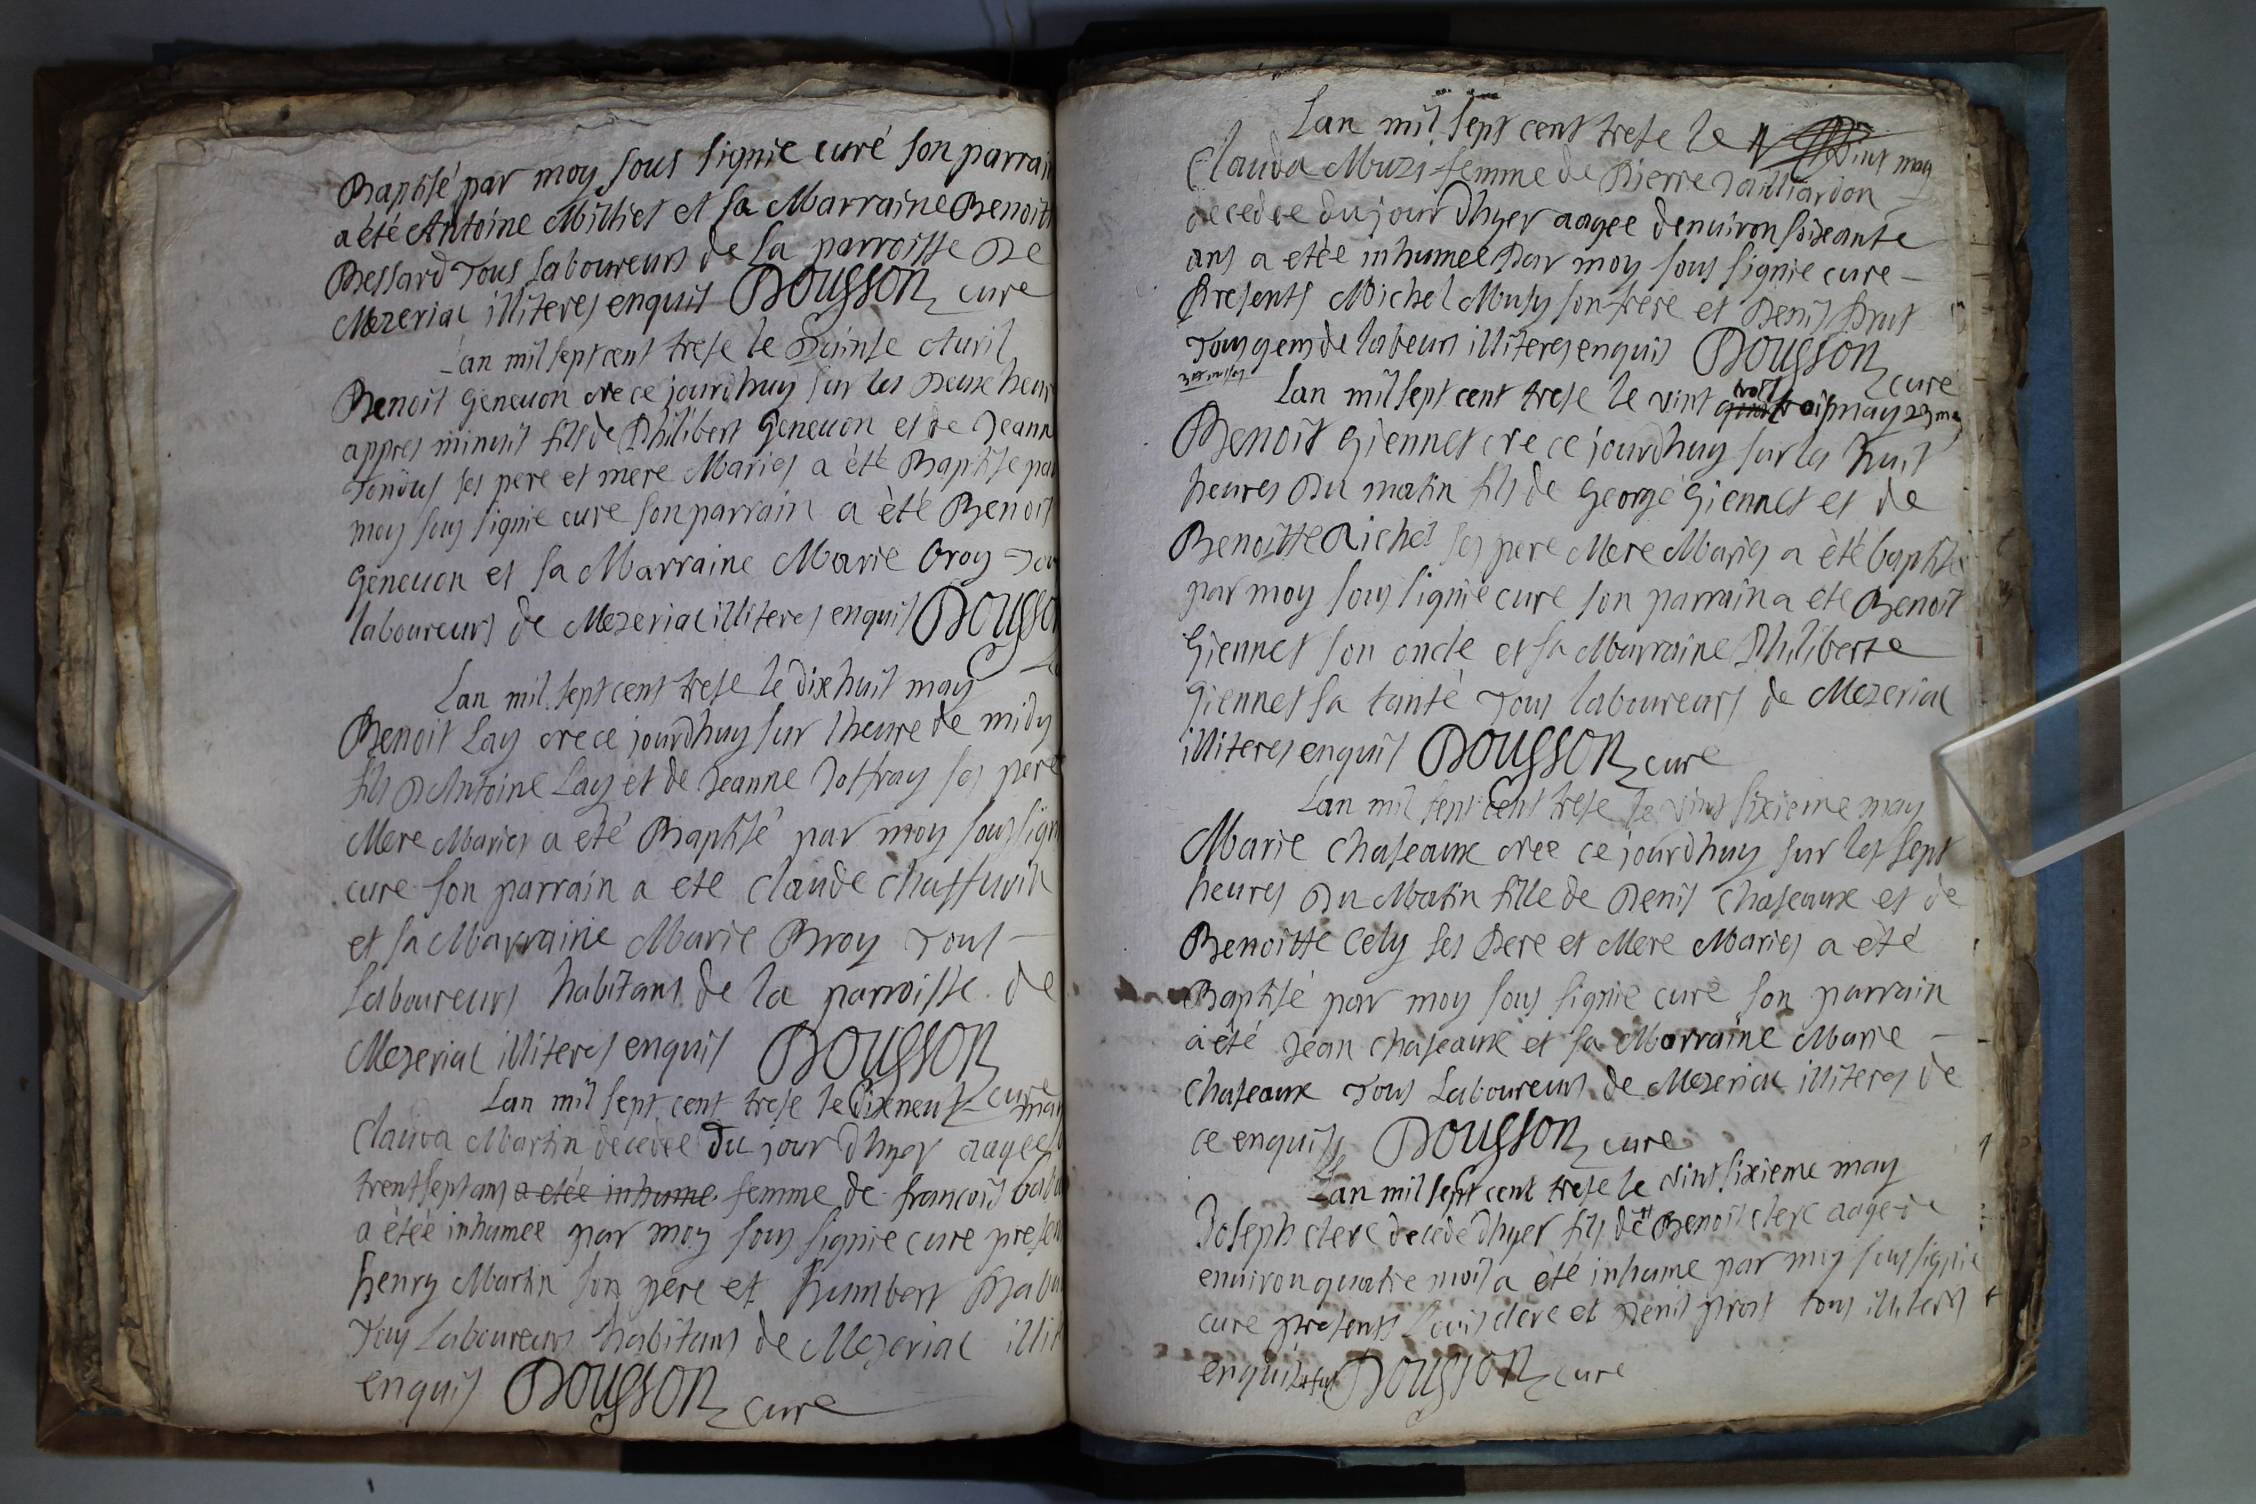 Baptisé par moy sous signie curé son parrai
a été Antoine Milliet et sa Marraine Benoitt
Bessard Tous laboureurs de la parroisse De
Mezeriac illiteres enquis Dousson cure
Lan mil sept cent trese le Quinse Avril
Benoit Geneuon cree ce jourdhuy sur les Deux heur
appres minuit fils de Philibert Geneuon et de Jeann
ses pere et mere Maries a été Baptise pa
moy sous signie cure son parrain a èté Benoit
Geneuon et sa Marraine Marie Broy Tou
laboureurs de Mezeriac illiteres enquis Dousso
Lan mil sept cent trese le dixhuit may
Benoit Lay cree ce jourdhuy sur lheure de midy
fils DAntoine Lay et de Jeanne Joffray ses pere
Mere Maries a été Baptisé par moy sous sign
cure son parrain a ete claude chaffurin
et sa Marraine Marie Broy Tous
Laboureurs habitans de la parroisse de
Mezeriac illiteres enquis Dousson
cure
Lan mil sept cent trese le Dixneuf may
Clauda Martin decedee Du jour Dhyer aagee
trentseptans a etée inhume femme de francois
a étée inhumee par moy sous signie cure presen
henry Martin son pere et humbert
Tous Laboureurs habitans de Mezeriac illit
enquis Dousson cure
Lan mil sept cent trese le vint may
Clauda Muzi femme de Pierre Tailliardon
decedee du jour Dhyer aagee denuiron soixante
ans a etée inhumee Par moy sous signie cure
Presents Michel Musy son frere et Denis Prut
Tous gens de labeurs illiteres enquis Dousson
cure
Lan mil sept cent trese le vint trois may 23 may
Benoit Giennet cree ce jourdhuy sur les huit
heures Du matin fils de George Giennet et de
Benoitte Richet ses pere Mere Maries a èté baptisé
par moy sous signie cure son parrain a eté Benoit
Giennet son oncle et sa Marraine Philiberte
Giennet sa tante Tous laboureurs de Mezeriac
illiteres enquis Dousson cure
Lan mil sept cent trese le vint sixieme may
Marie Chaseaux cree ce jourdhuy sur les sept
heures Du Matin fille de Denis Chaseaux et de
Benoitte Cely ses Pere et Mere Maries a èté
Baptisé par moy sous signie cure son parrain
a été Jean Chaseaux et sa Marraine Marie
Chaseaux Tous Laboureurs de Mezeriac illiteres de
ce enquis Dousson cure
Lan mil sept cent trese le vint sixieme may
Joseph clerc decede dhyer fils de Benoit clerc aage de
enuiron quatre mois a èté inhume par moy sous signie
cure presents Louis clerc et Denis prost tous illiteres
enquis Dousson cure